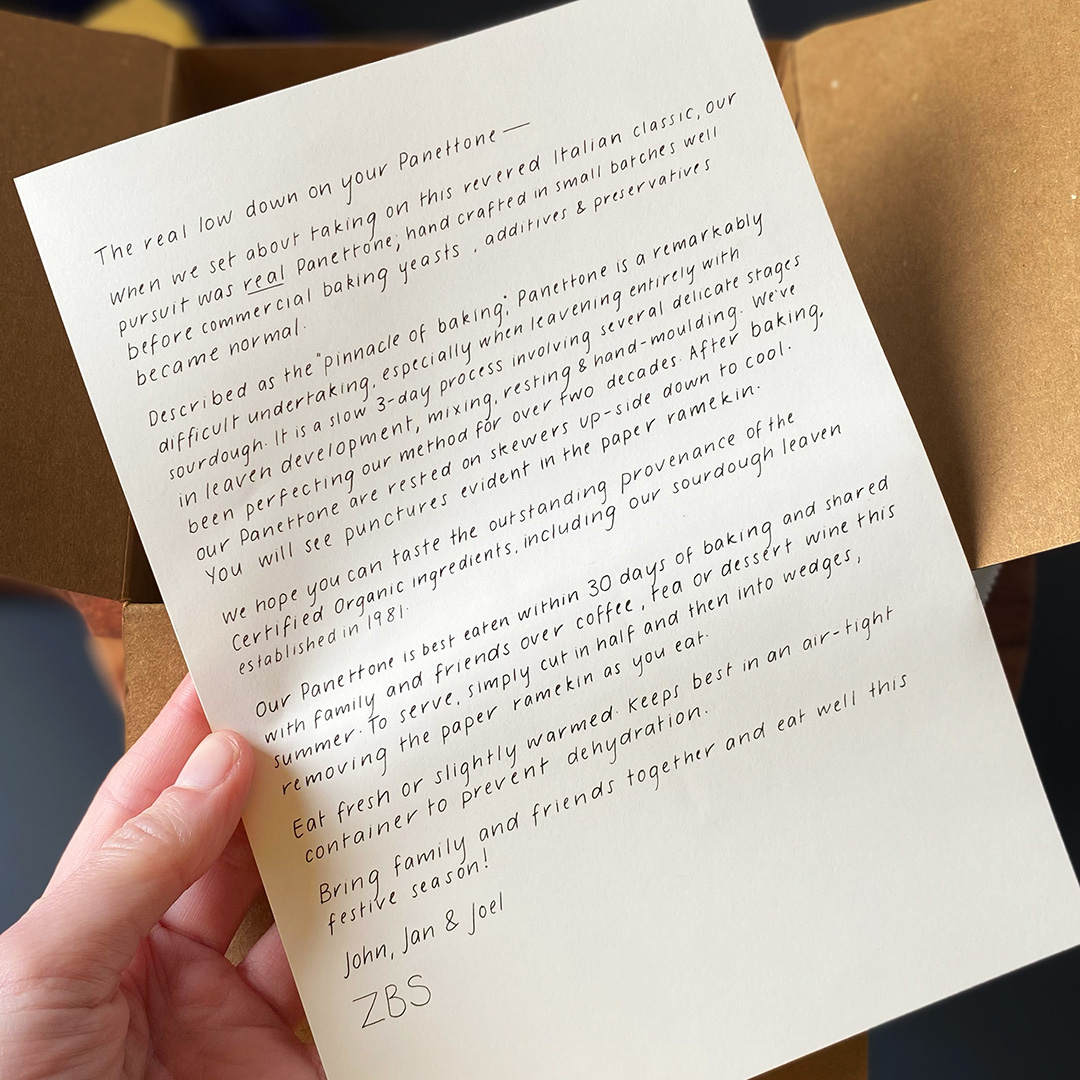 The real low down on your Panettone —
When we set about taking on this revered Italian classic, our
pursuit was real Panettone; hand crafted in small batches well
before commercial baking yeasts, additives & preservatives
became normal.
Described as the "pinnacle of baking"; Panettone is a remarkably
difficult undertaking, especially when leavening entirely with
sourdough. It is a slow 3-day process involving several delicate stages
in leaven development, mixing, resting & hand-moulding. We've
been perfecting our method for over two decades. After baking,
our Panettone are rested on skewers up-side down to cool.
You will see punctures evident in the paper ramekin.
We hope you can taste the outstanding provenance of the
Certified Organic ingredients, including our sourdough leaven
established in 1981.
Our Panettone is best eaten within 30 days of baking and shared
with family and friends over coffee, tea or dessert wine this
summer. To serve, simply cut in half and then into wedges,
removing the paper ramekin as you eat.
Eat fresh or slightly warmed. Keeps best in an air-tight
container to prevent dehydration.
Bring family and friends together and eat well this
festive season!
John, Jan & Joel
ZBS